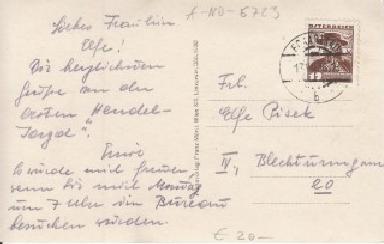 A-NÖ-6723
Liebes Fräulein
Else!
Die herzlichsten
Grüße von der
ersten "Hendel-
Jagd".
Würde mich freuen,
wenn Sie mich Montag
um 7 Uhr im Bureau
besuchen würden.
ÖSTERREICH
Frl.
Else Pisek
IV, Blechturmgasse
20
€ 20-